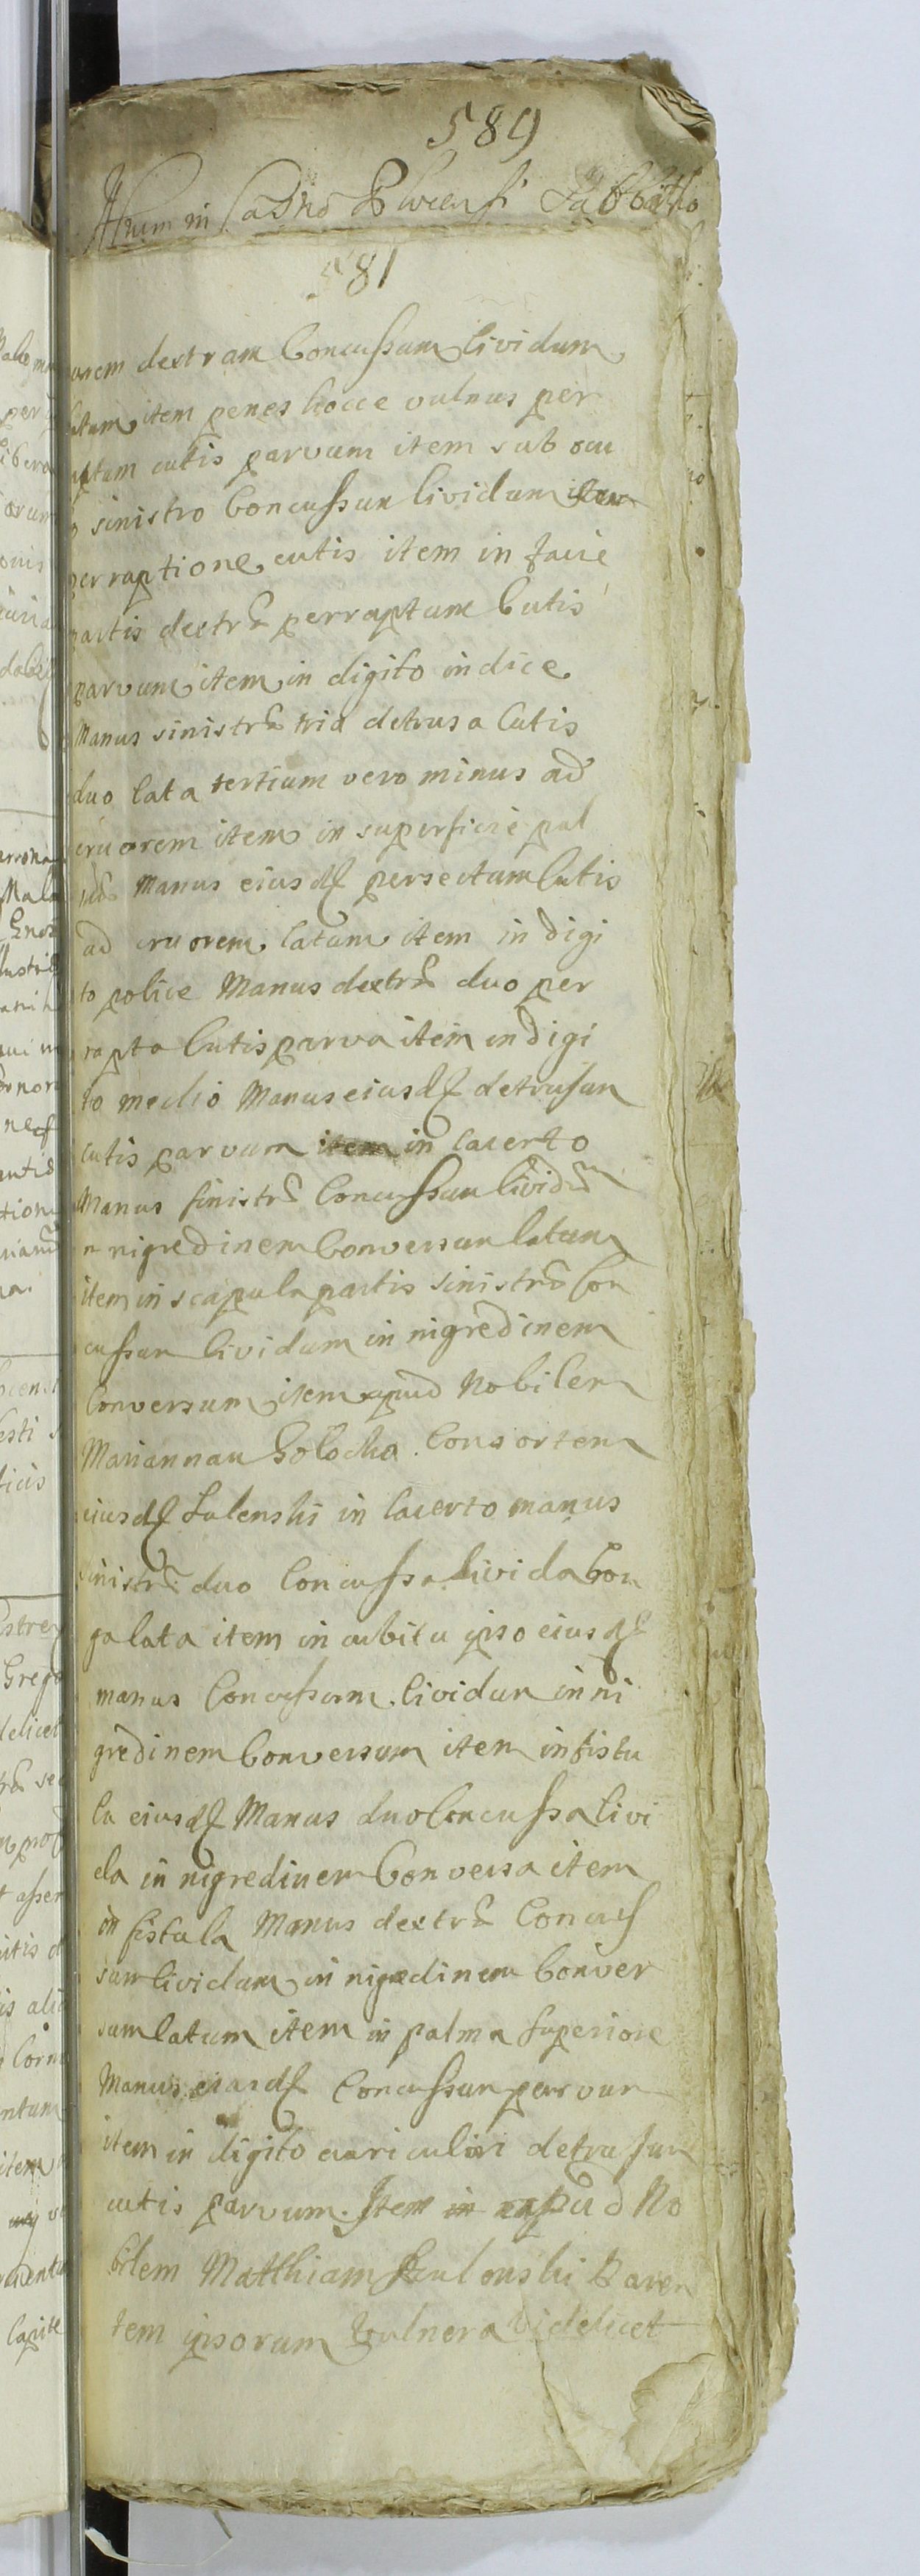 589
Actum in Castro Plocensi Sabbatho
581
orem dextram Concussum lividum
latum item penes hocce vulnus per
raptum cutis parvum item sub ocu
lo sinistro Concussum lividum cum
perraptione cutis item in facie
partis dextrę perraptum Cutis
parvum item in digito indice
Manus sinistrę tria detrusa Cutis
duo lata tertium vero minus ad
cruorem item in superficie pal
mę Manus eiusd persectum Cutis
ad cruorem latum item in digi
to police Manus dextrę duo per
rapta Cutis parva item in digi
to medio Manus eiusd detrusum
cutis parvum item in lacerto
Manus sinistrę Concussum lividum
in nigredinem Conversum latum
item in scapula partis sinistrę Con
cussum lividum in nigredinem
Conversum item apud Nobilem
Mariannam Consortem
eiusd Sulenski in lacerto manus
sinistrę duo Concussa livida Con
galata item in cubitu ipso eiusd
manus Concussum lividum in ni
gredinem Conversum item in fistu
la eiusd Manus duo Concussa livi
da in nigredinem Conversa item
in fistula Manus dextrę Concus
sum lividum in nigredinem Conver
sum latum item in palma superiore
Manus eiusd Concussum parvum
item in digito auriculari detrusum
cutis parvum. Item in apud No
bilem Matthiam Paren
tem ipsorum Vulnera videlicet